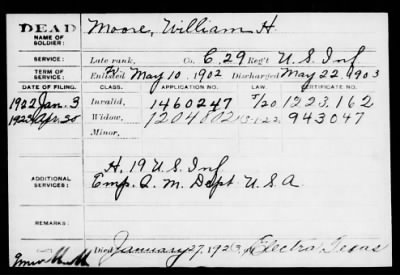 DEAD
NAME OF SOLDIER: Moore, William H.
SERVICE: Late rank, Co. C. 29 Reg't U.S. Inf
TERM OF SERVICE: Enlisted May 10, 1902 Discharged May 22, 1903
DATE OF FILING. CLASS. APPLICATION NO. LAW. CERTIFICATE NO.
1902 Jan. 3 Invalid, 1460247 1223.162
1923 Apr. 30 Widow, 1204802 943047
Minor,
ADDITIONAL SERVICES: H. 19 U.S. Inf
Emp. Q. M. Dept U.S.A
REMARKS:
Died January 27, 1923, Electra Texas